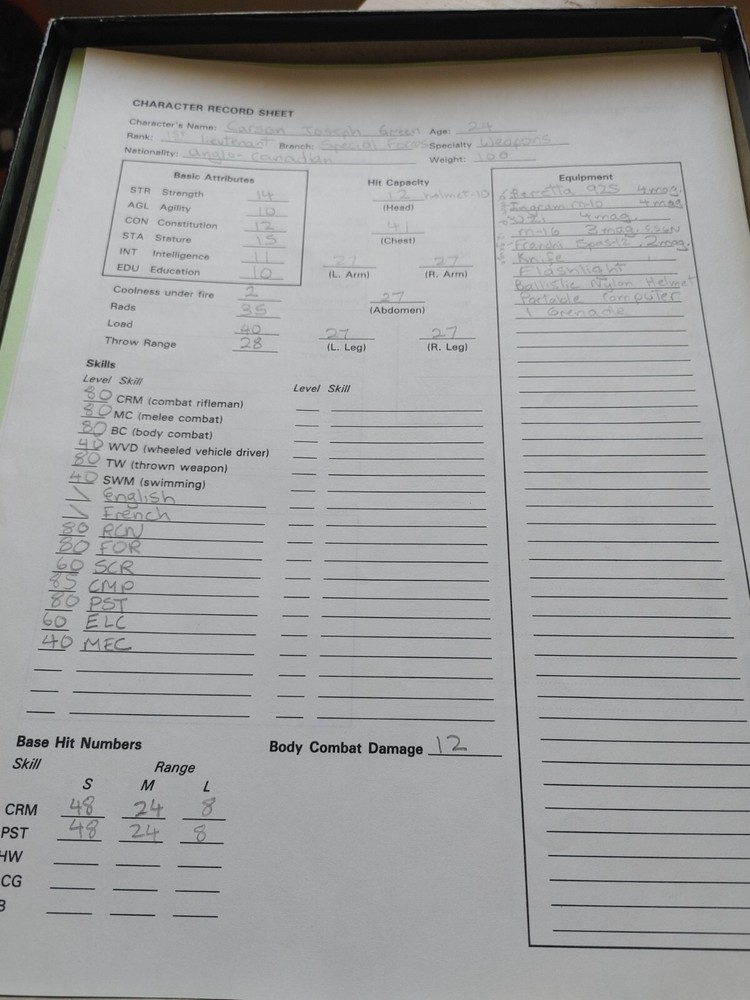 CHARACTER RECORD SHEET
Character's Name: Carson Joseph Green Age: 24
Rank: 1st lieutenant Branch: Special Forces Specialty Weapons
Nationality: Anglo-Canadian Weight: 100
Basic Attributes
STR Strength 14
AGL Agility 10
CON Constitution 12
STA Stature 15
INT Intelligence 11
EDU Education 10
Coolness under fire 2
Rads 35
Load 40
Throw Range 28
Hit Capacity
12 helmet-10
(Head)
41
(Chest)
27 27
(L. Arm) (R. Arm)
27
(Abdomen)
27 27
(L. Leg) (R. Leg)
Equipment
Beretta 92S 4 mag.
Ingram m-10 4 mag
Uzi 4 mag.
m-16 3 mag. 5.56N
Franchi Spas12, 2 mag.
Knife
Flashlight
Ballistic Nylon Helmet
Portable Computer
1 Grenade
Skills
Level Skill
80 CRM (combat rifleman)
80 MC (melee combat)
80 BC (body combat)
40 WVD (wheeled vehicle driver)
80 TW (thrown weapon)
40 SWM (swimming)
\ English
\ French
80 RCN
80 FOR
60 SCR
85 CMP
80 PST
60 ELC
40 MEC
Level Skill
Base Hit Numbers
Skill Range
S M L
CRM 48 24 8
PST 48 24 8
HW
CG
B
Body Combat Damage 12